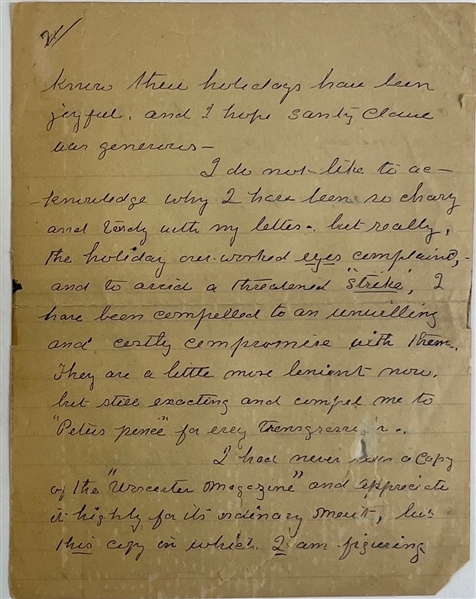 2/
know their holidays have been
joyful. and I hope Santy Claus
was generous —
I do not like to ac-
-knowledge why I have been so chary
and tardy with my letter. but really,
the holiday over-worked eyes complained,
and to avoid a threatened "Strike", I
have been compelled to an unwilling
and costly compromise with them.
They are a little more lenient now.
but still exacting and compel me to
"Peters pence" for every transgression.
I had never seen a copy
of the "Worcester Magazine" and appreciate
it highly for its ordinary merit, but
this copy in which I am figuring